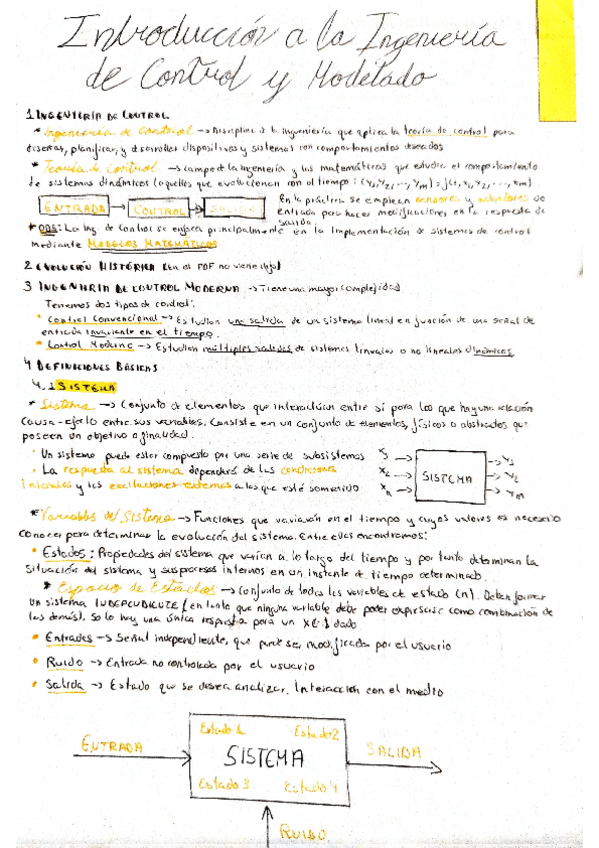 Introducción a la Ingeniería
de Control y Modelado
1 INGENIERÍA DE CONTROL
* Ingeniería de Control -> Disciplina de la ingeniería que aplica la teoría de control para
diseñar, planificar, y desarrollar dispositivos y sistemas con comportamientos deseados
* Teoría de Control -> campo de la ingeniería y las matemáticas que estudia el comportamiento
de sistemas dinámicos (aquellos que evolucionan con el tiempo:
ENTRADA CONTROL SALIDA
En la práctica se emplean sensores y actuadores de
entrada para hacer modificaciones en la respuesta de
salida.
* OBS: La Ing. de Control se enfoca principalmente en la implementación de sistemas de control
mediante MODELOS MATEMÁTICOS
2 EVOLUCIÓN HISTÓRICA (En el PDF no viene
3 INGENIERÍA DE CONTROL MODERNA -> Tiene una mayor complejidad
Tenemos dos tipos de control:
• Control Convencional -> Estudian una salida de un sistema lineal en función de una señal de
entrada invariente en el tiempo.
• Control Moderno -> Estudian múltiples salidas de sistemas lineales o no lineales dinámicos
4 DEFINICIONES BÁSICAS
4.1 SISTEMA
* Sistema -> Conjunto de elementos que interactúan entre sí para los que hay una relación
causa-efecto entre sus variables. Consiste en un conjunto de elementos, físicos o abstractos que
poseen un objetivo o finalidad.
• Un sistema puede estar compuesto por una serie de subsistemas
• La respuesta al sistema dependerá de las condiciones
iniciales y las excitaciones externas a los que esté sometido
SISTEMA
* Variables del Sistema -> Funciones que variarán en el tiempo y cuyos valores es necesario
conocer para determinar la evolución del sistema. Entre ellas encontramos:
• Estados: Propiedades del sistema que varían a lo largo del tiempo y por tanto determinan la
situación del sistema y sus procesos internos en un instante de tiempo determinado.
* Espacio de Estados -> Conjunto de todas las variables de estado (n). Deben formar
un sistema INDEPENDIENTE (en tanto que ninguna variable debe poder expresarse como combinación de
las demás). Solo hay una única respuesta para un dado
• Entradas -> Señal independiente, que puede ser modificada por el usuario
• Ruido -> Entrada no controlada por el usuario
• Salida -> Estado que se desea analizar. Interacción con el medio
Estado 1 Estado 2
ENTRADA SISTEMA SALIDA
Estado 3 Estado 4
RUIDO